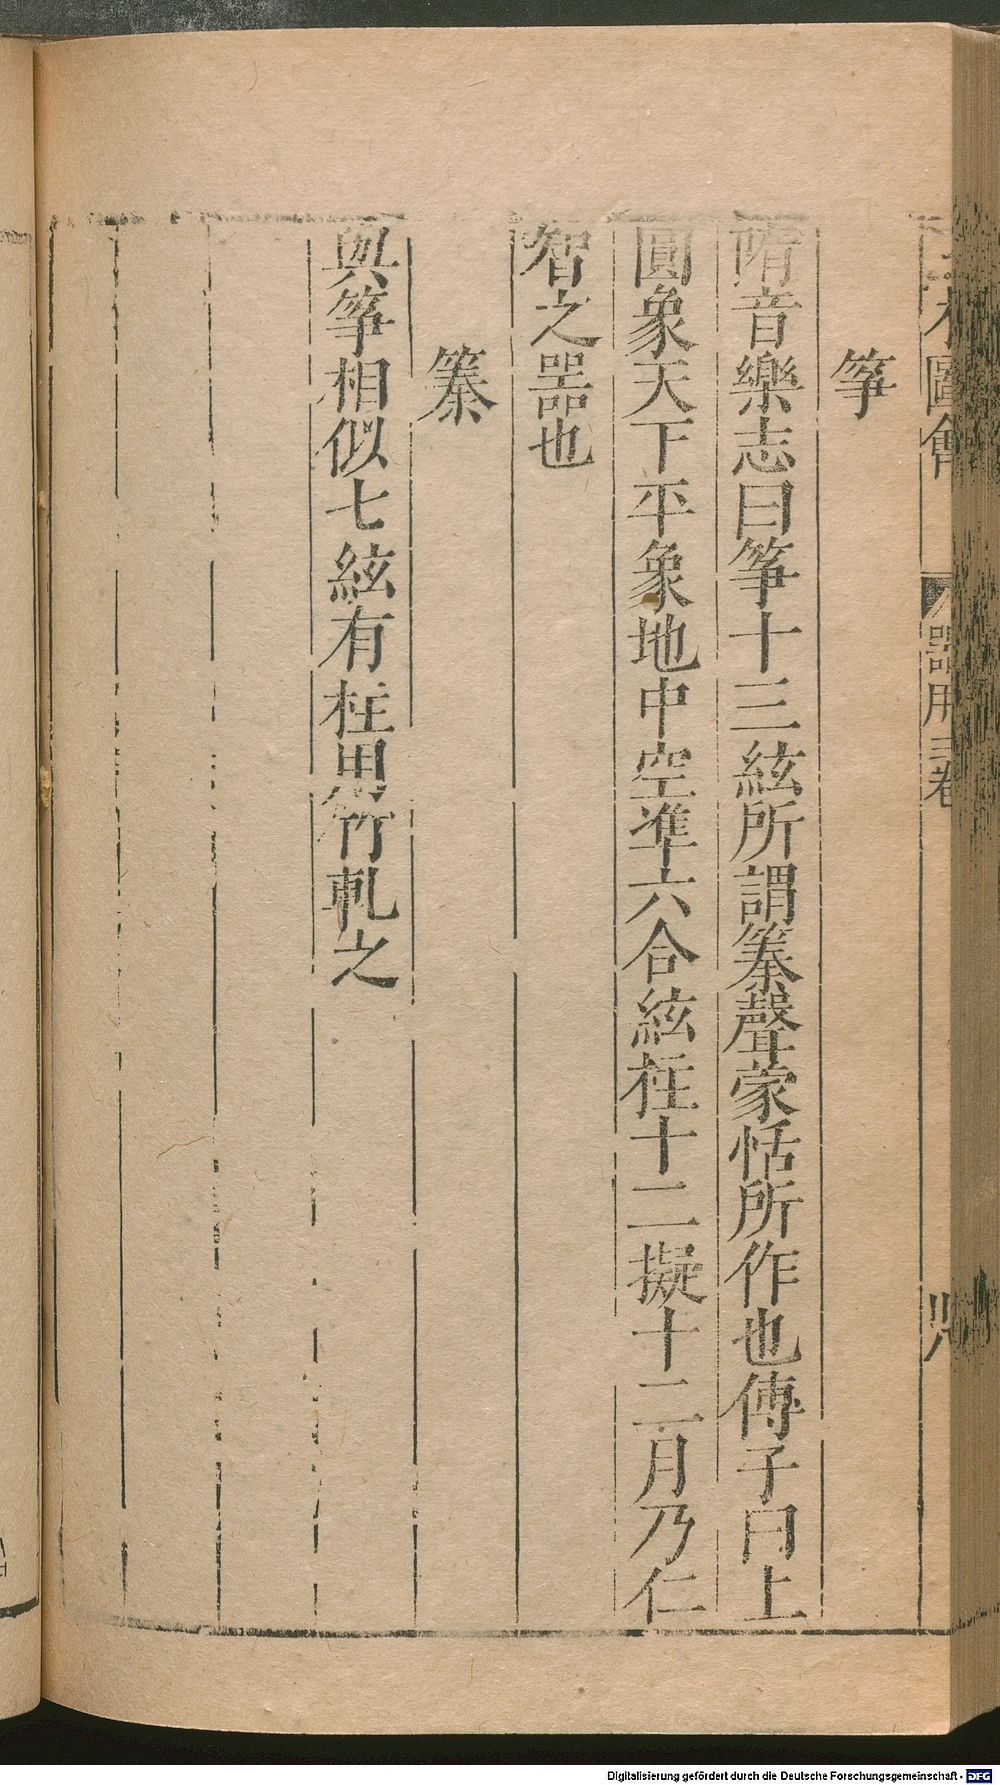 圖會
器用三卷
箏
隋音樂志曰箏十三絃所謂𥱼聲蒙恬所作也傳子曰上
圓象天下平象地中空準六合絃柱十二擬十二月乃仁
智之器也
𥱼
與箏相似七絃有柱用竹軋之
Digitalisierung gefördert durch die Deutsche Forschungsgemeinschaft - DFG